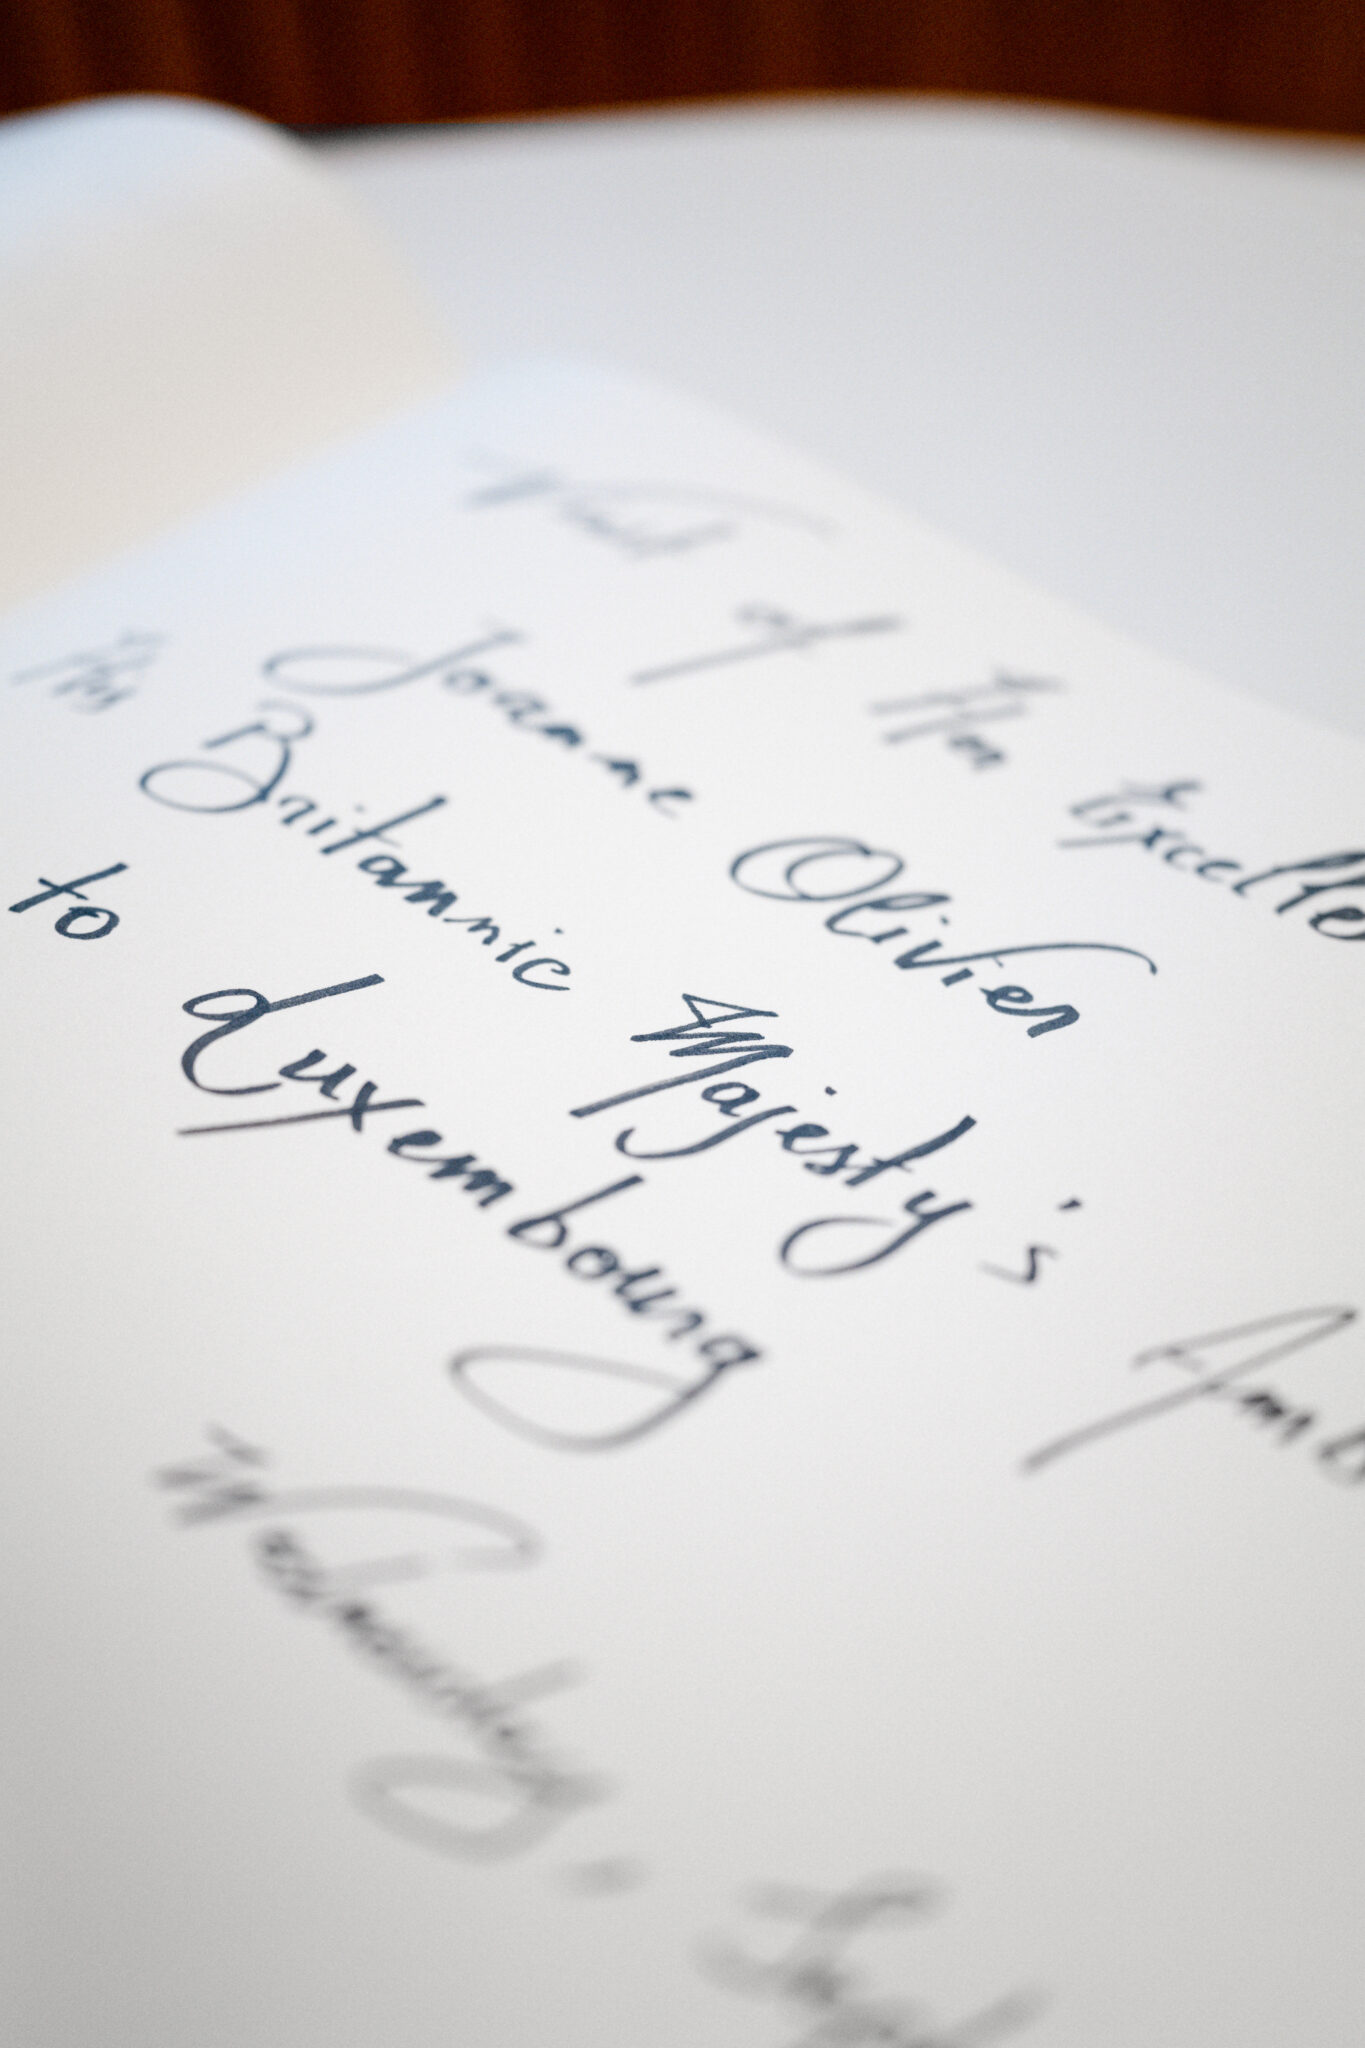 Visit of Her Excelle
Joanne Olivier
His Britannic Majesty's Amb
to Luxembourg
Wednesday,